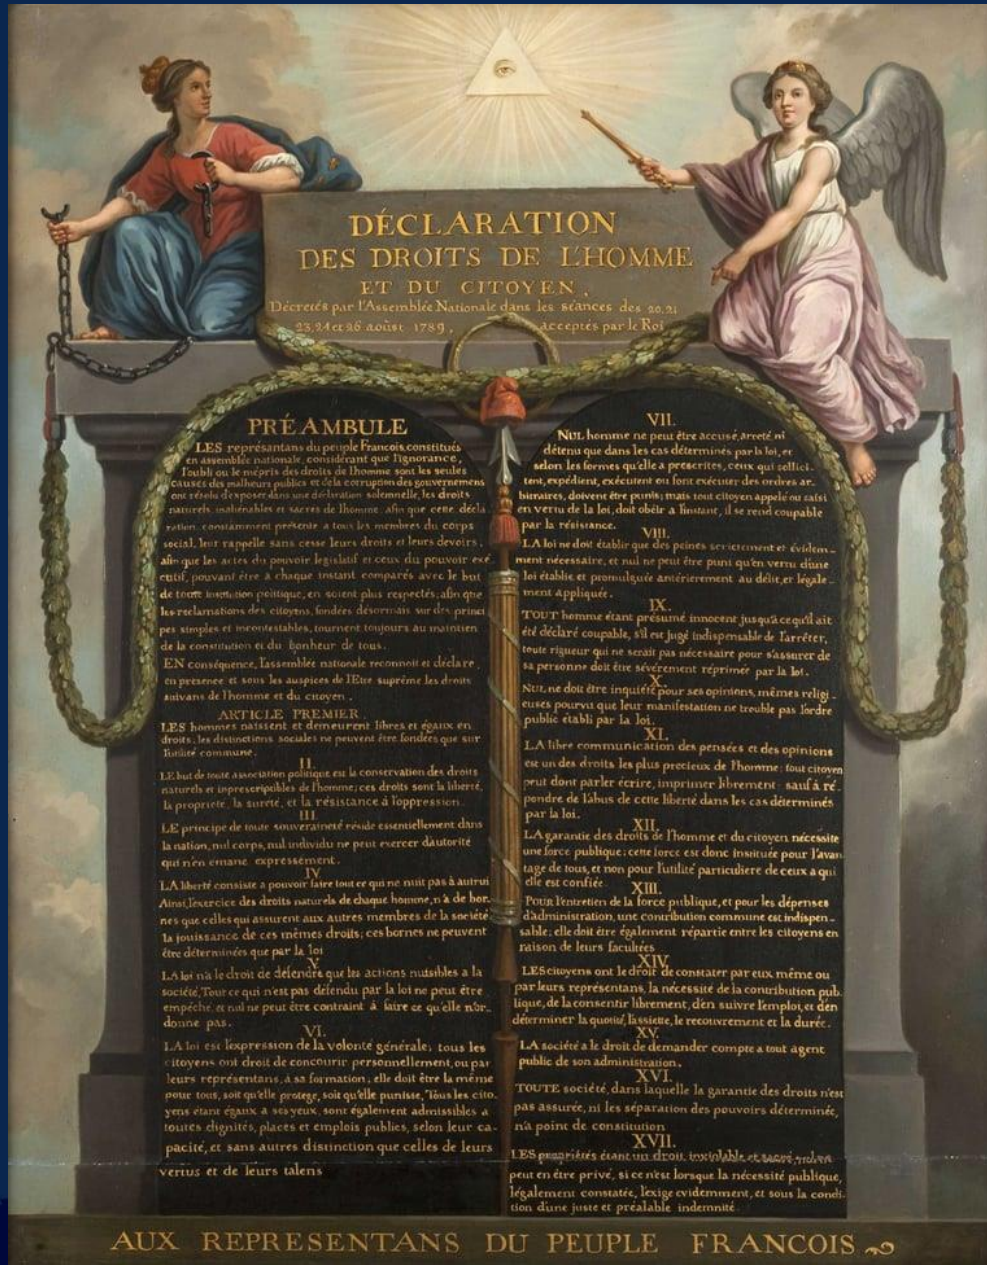 DÉCLARATION
DES DROITS DE L'HOMME
ET DU CITOYEN,
Décretés par l'Assemblée Nationale dans les séances des 20, 21
23, 24 et 26 août 1789, acceptés par le Roi
PRÉAMBULE
LES représentans du peuple Francois, constitués
en assemblée nationale, considérant que l'ignorance,
l'oubli ou le mépris des droits de l'homme sont les seules
causes des malheurs publics et de la corruption des gouvernemens
ont résolu d'exposer dans une déclaration solemnelle, les droits
naturels, inaliénables et sacrés de l'homme, afin que cette décla
ration, constamment présente a tous les membres du corps
social, leur rappelle sans cesse leurs droits et leurs devoirs,
afin que les actes du pouvoir législatif et ceux du pouvoir exé
cutif, pouvant être à chaque instant comparés avec le but
de toute institution politique, en soient plus respectés; afin que
les reclamations des citoyens, fondées désormais sur des princi
pes simples et incontestables, tournent toujours au maintien
de la constitution et du bonheur de tous.
EN conséquence, l'assemblée nationale reconnoit et déclare,
en presence et sous les auspices de l'Etre suprême les droits
suivans de l'homme et du citoyen.
ARTICLE PREMIER.
LES hommes naissent et demeurent libres et égaux en
droits; les distinctions sociales ne peuvent être fondées que sur
l'utilité commune.
II.
LE but de toute association politique est la conservation des droits
naturels et inprescriptibles de l'homme; ces droits sont la liberté,
la propriété, la sureté, et la résistance à l'oppression.
III.
LE principe de toute souveraineté réside essentiellement dans
la nation, nul corps, nul individu ne peut exercer d'autorité
qui n'en émane expressement.
IV
LA liberté consiste a pouvoir faire tout ce qui ne nuit pas à autrui
Ainsi, l'exercice des droits naturels de chaque homme, n'a de bor-
nes que celles qui assurent aux autres membres de la société
la jouissance de ces mêmes droits; ces bornes ne peuvent
être déterminées que par la loi
V.
LA loi n'a le droit de défendre que les actions nuisibles a la
société, Tout ce qui n'est pas défendu par la loi ne peut être
empêché, et nul ne peut être contraint à faire ce qu'elle n'or-
donne pas.
VI.
LA loi est l'expression de la volonté générale; tous les
citoyens ont droit de concourir personnellement, ou par
leurs représentans, à sa formation; elle doit être la même
pour tous, soit qu'elle protege, soit qu'elle punisse, Tous les cito-
yens étant égaux a ses yeux, sont également admissibles a
toutes dignités, places et emplois publics, selon leur ca-
pacité, et sans autres distinction que celles de leurs
vertus et de leurs talens
VII.
NUL homme ne peut être accusé, arreté, ni
détenu que dans les cas déterminés par la loi, et
selon les formes qu'elle a prescrites, ceux qui sollici-
tent, expédient, exécutent ou font exécuter des ordres ar-
bitraires, doivent être punis; mais tout citoyen appelé ou saisi
en vertu de la loi, doit obéir a l'instant, il se rend coupable
par la résistance.
VIII.
LA loi ne doit établir que des peines strictement et évidem-
ment nécessaire, et nul ne peut être puni qu'en vertu d'une
loi établie et promulguée antérierement au délit, et légale-
ment appliquée.
IX.
TOUT homme étant présumé innocent jusqu'a ce qu'il ait
été déclaré coupable, s'il est jugé indispensable de l'arrêter,
toute rigueur qui ne serait pas nécessaire pour s'assurer de
sa personne doit être sévèrement réprimée par la loi.
X.
NUL ne doit être inquiété pour ses opinions, mêmes religi
euses pourvu que leur manifestation ne trouble pas l'ordre
public établi par la loi.
XI.
LA libre communication des pensées et des opinions
est un des droits les plus precieux de l'homme; tout citoyen
peut dont parler écrire, imprimer librement: sauf à ré
pondre de l'abus de cette liberté dans les cas déterminés
par la loi.
XII.
LA garantie des droits de l'homme et du citoyen nécessite
une force publique; cette force est donc instituée pour l'avan
tage de tous, et non pour l'utilité particuliere de ceux a qui
elle est confiée.
XIII.
POUR l'entretien de la force publique, et pour les dépenses
d'administration, une contribution commune est indispen-
sable; elle doit être également répartie entre les citoyens en
raison de leurs facultées
XIV.
LES citoyens ont le droit de constater par eux même ou
par leurs représentans, la nécessité de la contribution pub-
lique, de la consentir librement, d'en suivre l'emploi, et d'en
déterminer la quotité, l'assiette, le recouvrement et la durée.
XV.
LA société a le droit de demander compte a tout agent
public de son administration.
XVI.
TOUTE société, dans laquelle la garantie des droits n'est
pas assurée, ni les séparation des pouvoirs déterminée,
n'a point de constitution
XVII.
LES propriétés étant un droit inviolable et sacré, nul ne
peut en être privé, si ce n'est lorsque la nécessité publique,
légalement constatée, l'exige evidemment, et sous la condi-
tion d'une juste et préalable indemnité.
AUX REPRESENTANS DU PEUPLE FRANCOIS